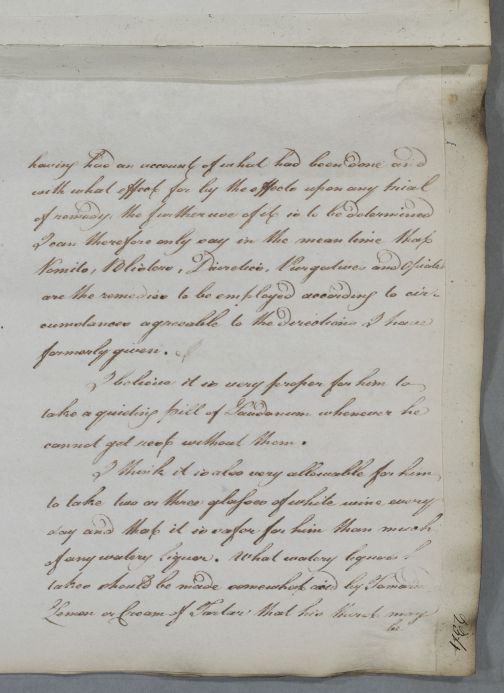 having had an account of what had been done and
with what effect for by the effects upon any trial
of remedy, the further use of it is to be determined
I can therefore only say in the mean time that
Vomits, Blisters, Diuretics, Purgatives and Opiates
are the remedies to be employed according to cir-
cumstances agreeable to the directions I have
formerly given.
I believe it is very proper for him to
take a quieting pill of Laudanum whenever he
cannot get rest without them.
I think it is also very allowable for him
to take two or three glasses of white wine every
day and that it is safer for him than much
of any watery liquor. What watery liquors
takes should be made somewhat acid by
Lemon or Cream of Tartar that his thirst may
be